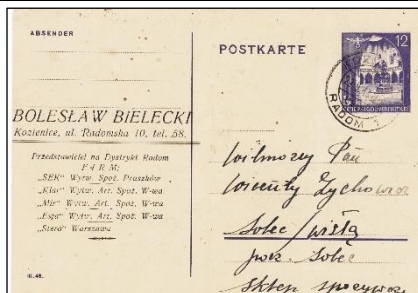 ABSENDER
POSTKARTE
12
RADOM 1
BOLESŁAW BIELECKI
Kozienice, ul. Radomska 10, tel. 58.
Przedstawiciel na Dystrykt Radom
FIRM:
„SEK" Wytw. Spoż. Pruszków
„Klar" Wytw. Art. Spoż. W-wa
„Mir" Wytw. Art. Spoż. W-wa
„Espa" Wytw. Art. Spoż. W-wa
„Stero" Warszawa
Wielmożny Pan
Wincenty Żychowicz
Solec / Wisłą
pocz. Solec
Sklep spożywcz